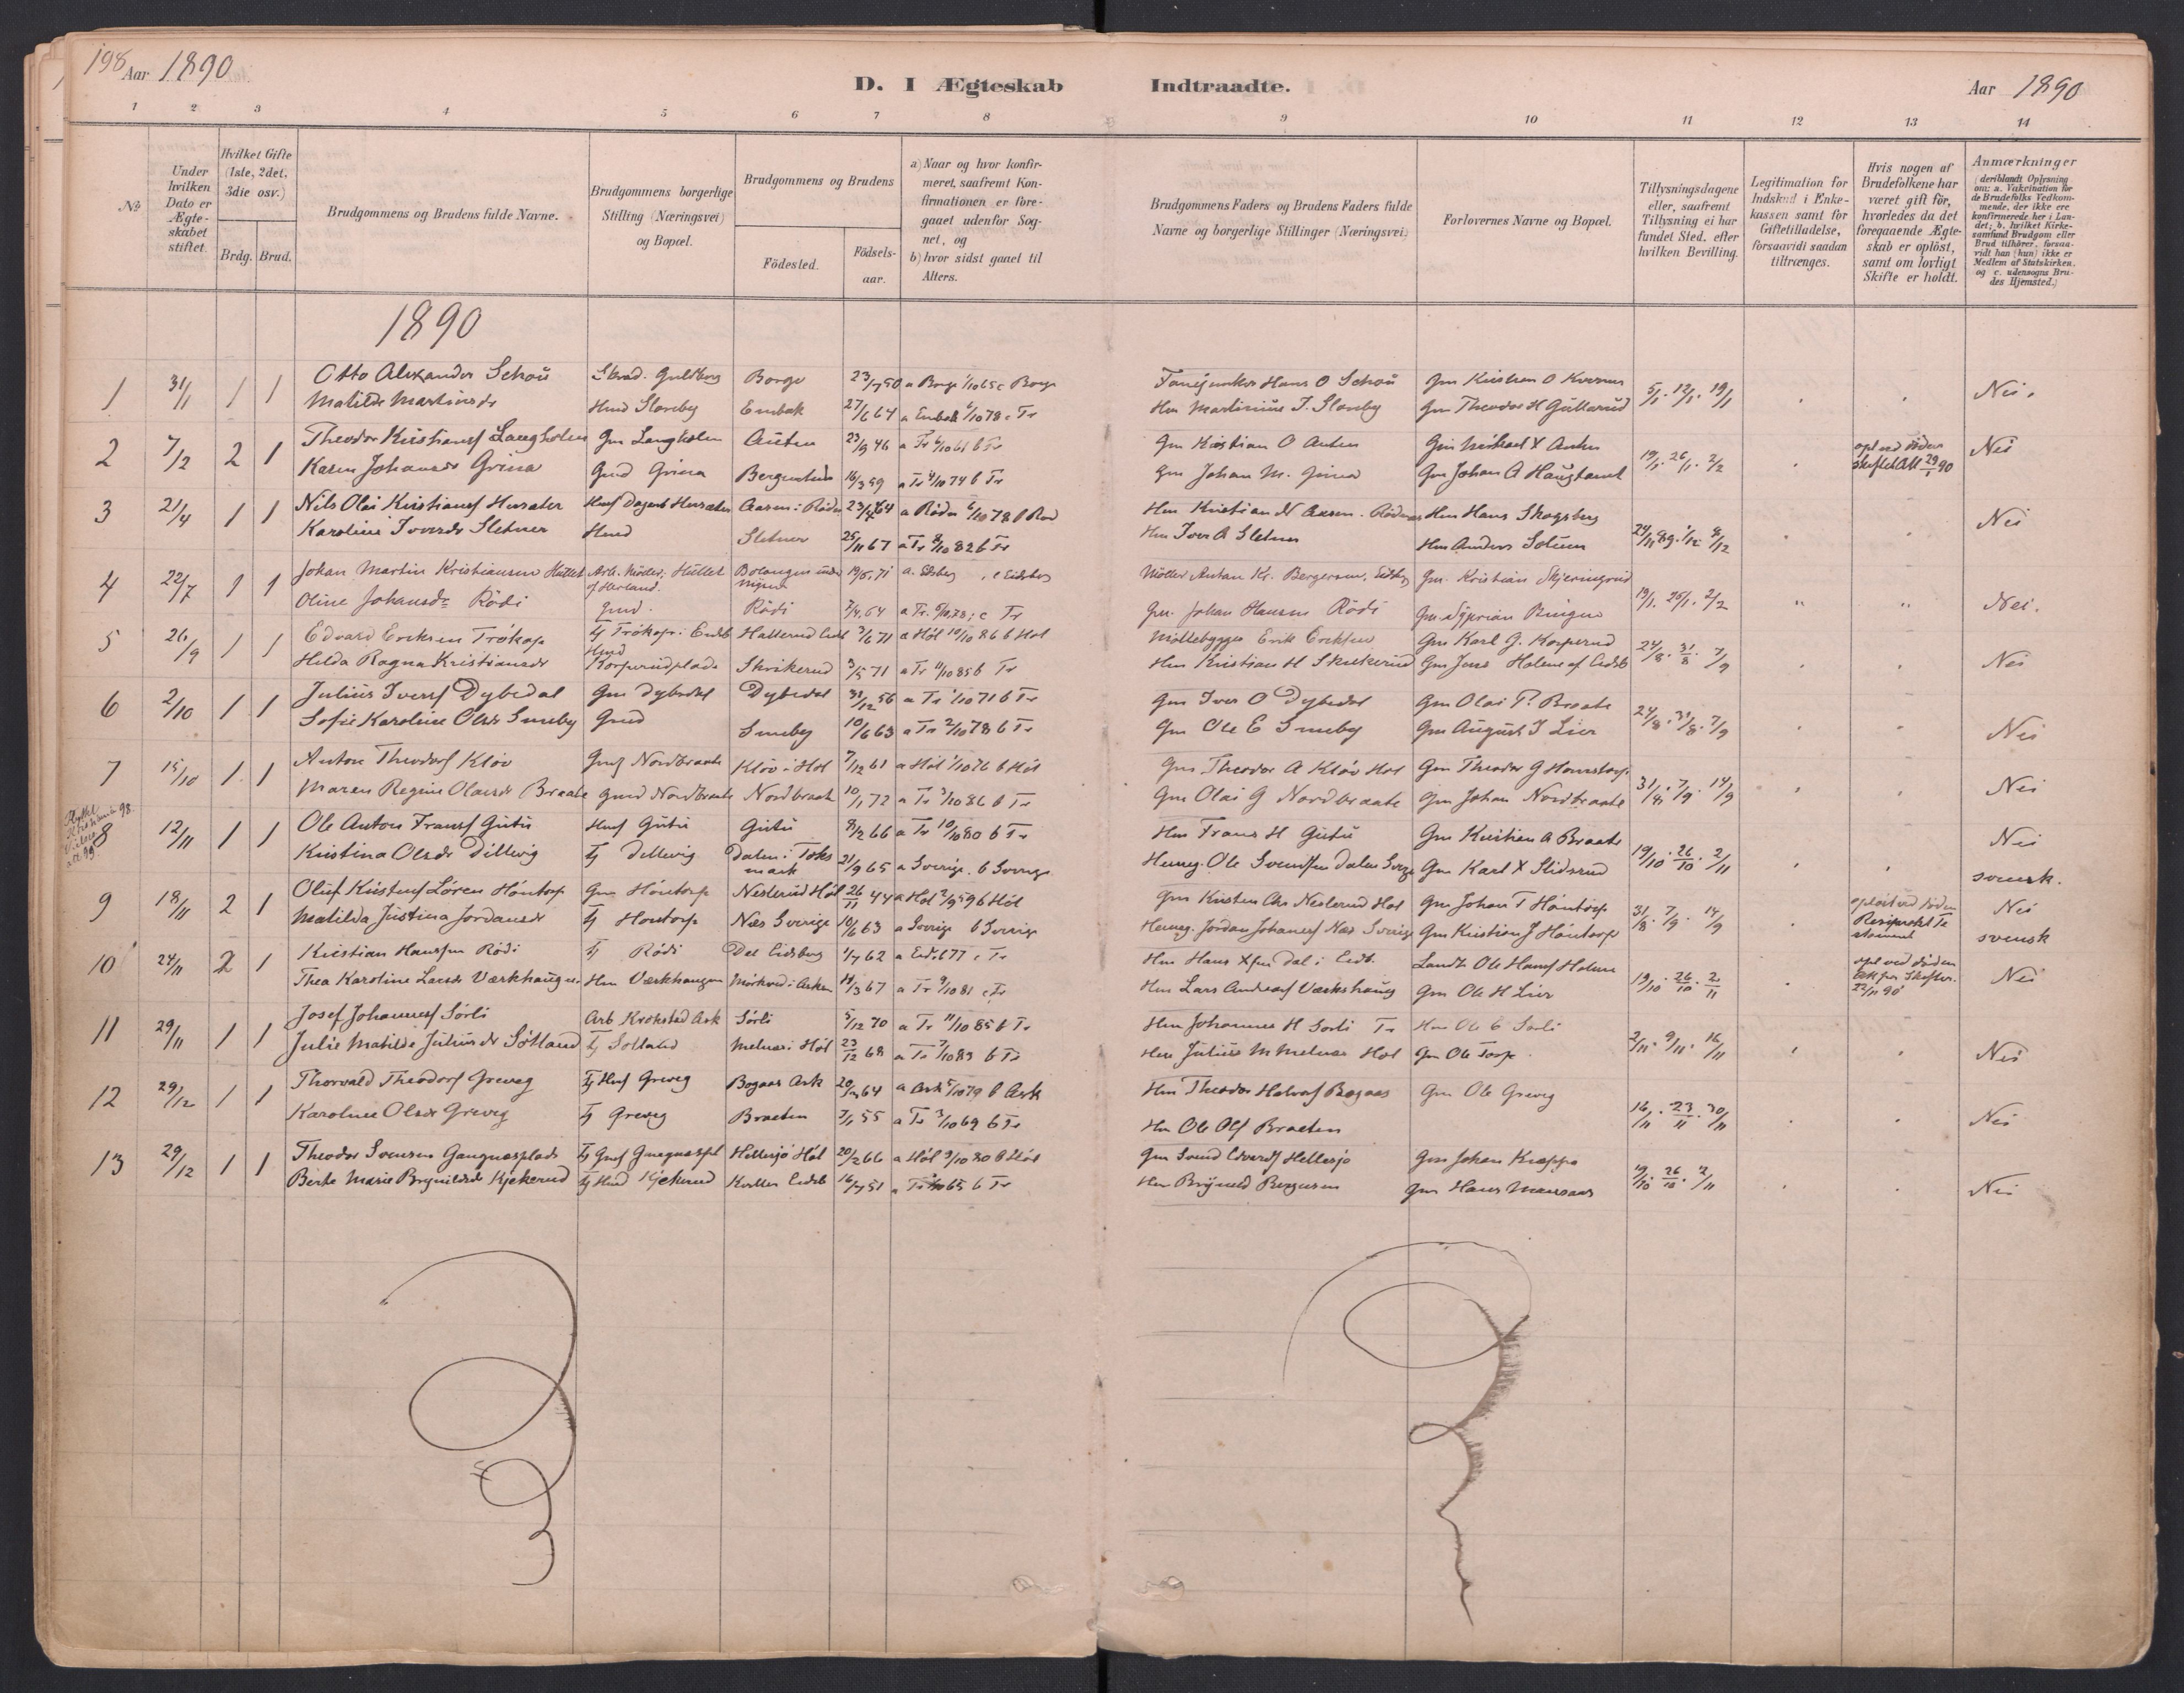 198 Aar 1890
D. I Ægteskab Indtraadte.
Aar 1890
1 2 3 4 5 6 7 8 9 10 11 12 13 14
№
Under hvilken Dato er Ægteskabet stiftet.
Hvilket Gifte (1ste, 2det, 3die osv.)
Brdg. Brud.
Brudgommens og Brudens fulde Navne.
Brudgommens borgerlige Stilling (Næringsvei) og Bopæl.
Brudgommens og Brudens
Födested. Födselsaar.
a) Naar og hvor konfirmeret, saafremt Konfirmationen er foregaaet udenfor Sognet, og
b) hvor sidst gaaet til Alters.
Brudgommens Faders og Brudens Faders fulde Navne og borgerlige Stillinger (Næringsvei)
Forlovernes Navne og Bopæl.
Tillysningsdagene eller, saafremt Tillysning ei har fundet Sted, efter hvilken Bevilling.
Legitimation for Indskud i Enkekassen samt for Giftetilladelse, forsaavidt saadan tiltrænges.
Hvis nogen af Brudefolkene har været gift för, hvorledes da det foregaaende Ægteskab er oplöst, samt om lovligt Skifte er holdt.
Anmærkninger (deriblandt Oplysning om: a. Vakcination for de Brudefolks Vedkommende, der ikke ere konfirmerede her i Landet; b. hvilket Kirkesamfund Brudgom eller Brud tilhörer, forsaavidt han (hun) ikke er Medlem af Statskirken, og c. udensogns Brudes Hjemsted.)
1890
1 31/1 1 1 Otto Alexander Schou Skræd. Guldberg Borge 23/7 50 a Borge 1/10 65 c Borge Hans O Schou Gm Kristian O 5/1. 12/1. 19/1 Nei.
Matilde Martinsdr Hmd Sloreby Enebak 27/6 64 a Enebak 6/10 78 c Tr Hm Martinius J. Sloreby Gm Theodor H Gullerud
2 7/2 2 1 Theodor Kristiansf Langholen Gm Langholen Auten 23/9 46 a Tr 6/10 61 b Tr Gm Kristian O Auten Gm Mikael X Auten opl ved döden Nei
Karen Johansdr Grina Gmd Grina 16/3 59 a Tr 4/10 74 b Tr Gm Johan M. Grina Gm Johan A Haugtamt 19/1. 26/1. 2/2 29/1 90
3 21/4 1 1 Nils Olai Kristiansf Hersæter Hmf Aasen i Röden 23/4 64 a Röden 6/10 78 b Röd Hm Kristian N Aasen. Rödenæs Hm Hans Skogsberg Nei
Karoline Iversdr Sletner Hmd Sletner 25/11 67 a Tr 8/10 82 b Tr Hm Iver A Sletner Hm Anders Solum 24/11 89. 1/12 8/12
4 22/7 1 1 Johan Martin Kristiansen Hullet Arb. Möller, Hullet af Herland. 19/5. 71 a. Edsberg, c Eidsberg Möller Anton Kr. Bergersen, Eidsbg Gm. Kristian Skjeringrud 19/1. 26/1. 2/2
Oline Johansdr Rödi Gmd. Rödi 7/4. 64 a Tr. 6/10. 78; c Tr Gm. Johan Hansen Rödi Gm. Syprian Ringen " " Nei.
5 26/9 1 1 Edvard Eriksen Trökop Tj Trökop i Eidsb Hallerud Eidsb 3/6 71 a Höl 10/10 86 b Höl Möllebygger Erik Eriksen Gm Karl G. Korperud 24/8. 31/8. 7/9 Nei
Helda Ragna Kristiansdr Hmd Korperudplads Skrikerud 3/5 71 a Tr 11/10 85 b Tr Hm Kristian H Skrikerud Gm Jens Holene af Eidsb
6 2/10 1 1 Julius Iversf Dybedal Gm Dybedal Dybedal 31/12 56 a Tr 1/10 71 b Tr Gm Iver O Dybedal Gm Olai P. Braate 24/8. 31/8. 7/9
Sofie Karoline Olsdr Smeby Gmd Smeby 10/6 63 a Tr 2/10 78 b Tr Gm Ole E Smeby Gm August J Lier Nei
7 15/10 1 1 Anton Theodorf Klöv Gmf Nordbraate Klöv i Höl 7/12 61 a Höl 1/10 76 b Höl Gm Theodor A Klöv Höl Gm Theodor G 31/8. 7/9. 14/9 Nei
Maren Regine Olaesdr Braate Gmd Nordbraate Nordbraate 10/1 72 a Tr 3/10 86 b Tr Gm Olai G Nordbraate Gm Johan Nordbraate
Flyttet Kristiania 98.
8 12/11 1 1 Ole Anton Fransf Gutu Hmf Gutu Gutu 8/2 66 a Tr 10/10 80 b Tr Hm Frans H Gutu Gm Kristian A Braate 19/10. 26/10. 2/11 Nei
Kristina Olsdr Dillevig Tj Dillevig Dalen i Töksmark 21/9 65 a Sverige. b Sverige Hemeg. Ole Svendsen Dalen Sverge Gm Karl X Slidsrud svensk.
9 18/11 2 1 Oluf Kristensf Lören Höntorp Gm Höntorp Neslerud Höl 26/11 44 a Höl 2/9 59 b Höl Gm Kristen Chr Neslerud Höl Gm Johan T Höntorp 31/8. 7/9. 14/9 oplöst ved döden Nei
Matilda Justina Jordansdr Tj Höntorp Næs Sverige 10/6 63 a Sverige b Sverige Hemeg. Jordan Johansf Næs Sverige Gm Kristian J Höntorp Resiprokt Testament svensk
10 24/11 2 1 Kristian Hansfen Rödi Tj Rödi Dal Eidsberg 1/7 62 a Eidsb 77 c Tr Hm Hans Xfen Dal i Eidb. Landh Ole Hansf Holene 19/10. 26/10. 2/11 opl ved döden Nei
Thea Karoline Larsdr Værkhaugen Hm Værkhaugen Mörkved i Askim 14/3 67 a Tr 9/10 81 c Tr Hm Lars Andreasf Værkshaug Gm Ole H Lier 22/11 90
11 29/11 1 1 Josef Johannesf Sörli Arb Krokstad Ask Sörli 5/12 70 a Tr 11/10 85 b Tr Hm Johannes H Sörli Tr Hm Ole E Sörli 2/11. 9/11. 16/11
Julie Matilde Juliusdr Sötland Tj Sötland Melnæs i Höl 23/12 68 a Tr 7/10 83 b Tr Hm Julius M Melnæs Höl Gm Ole Torp Nei
12 29/12 1 1 Thorvald Theodorf Greveg Tj Hmf Greveg Bogaas Ask 20/ 64 a Ask 5/10 79 b Ask Hm Theodor Halvorsf Bogaas Gm Ole Greveg 16/11. 23/11. 30/11
Karoline Olsdr Greveg Tj Greveg Braaten 7/1 55 a Tr 3/10 69 b Tr Hm Ole Olsf Braaten Nei
13 29/12 1 1 Theodor Svensen Gangnæsplads Tj Gmf Hellesjö Höl 20/2 66 a Höl 3/10 80 b Höl Gm Svend Edvardf Hellesjö Gm Johan Kroppa 19/10. 26/10. 2/11
Berte Marie Brynildsdr Kjekerud Tj Hmd Kjekerud Eidsb 16/7 51 a Tr 65 b Tr Hm Brynild Gm Hans Nei